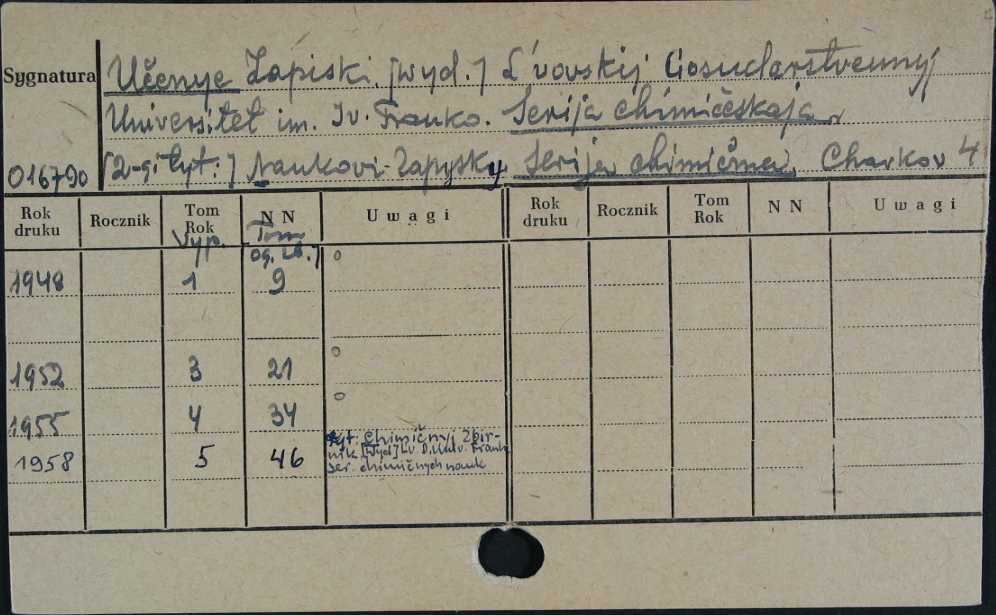 Sygnatura Učenye Zapiski. [wyd.] L'vovskij Gosudarstvennyj
Universitet im. Iv. Franko. Serija chimičeskaja.
016790 [2-gi tyt.:] Naukovi Zapysky Serija chimična, Charkov 4
Rok druku Rocznik Tom Rok N N Uwagi Rok druku Rocznik Tom Rok N N Uwagi
Vyp. Tom
og. zb.]
1948 1 9
1952 3 21
1955 4 34
1958 5 46
tyt. Chimičnyj Zbir-
nik [Wyd] Lv. D. Univ. Frank
Ser. chimičnych nauk